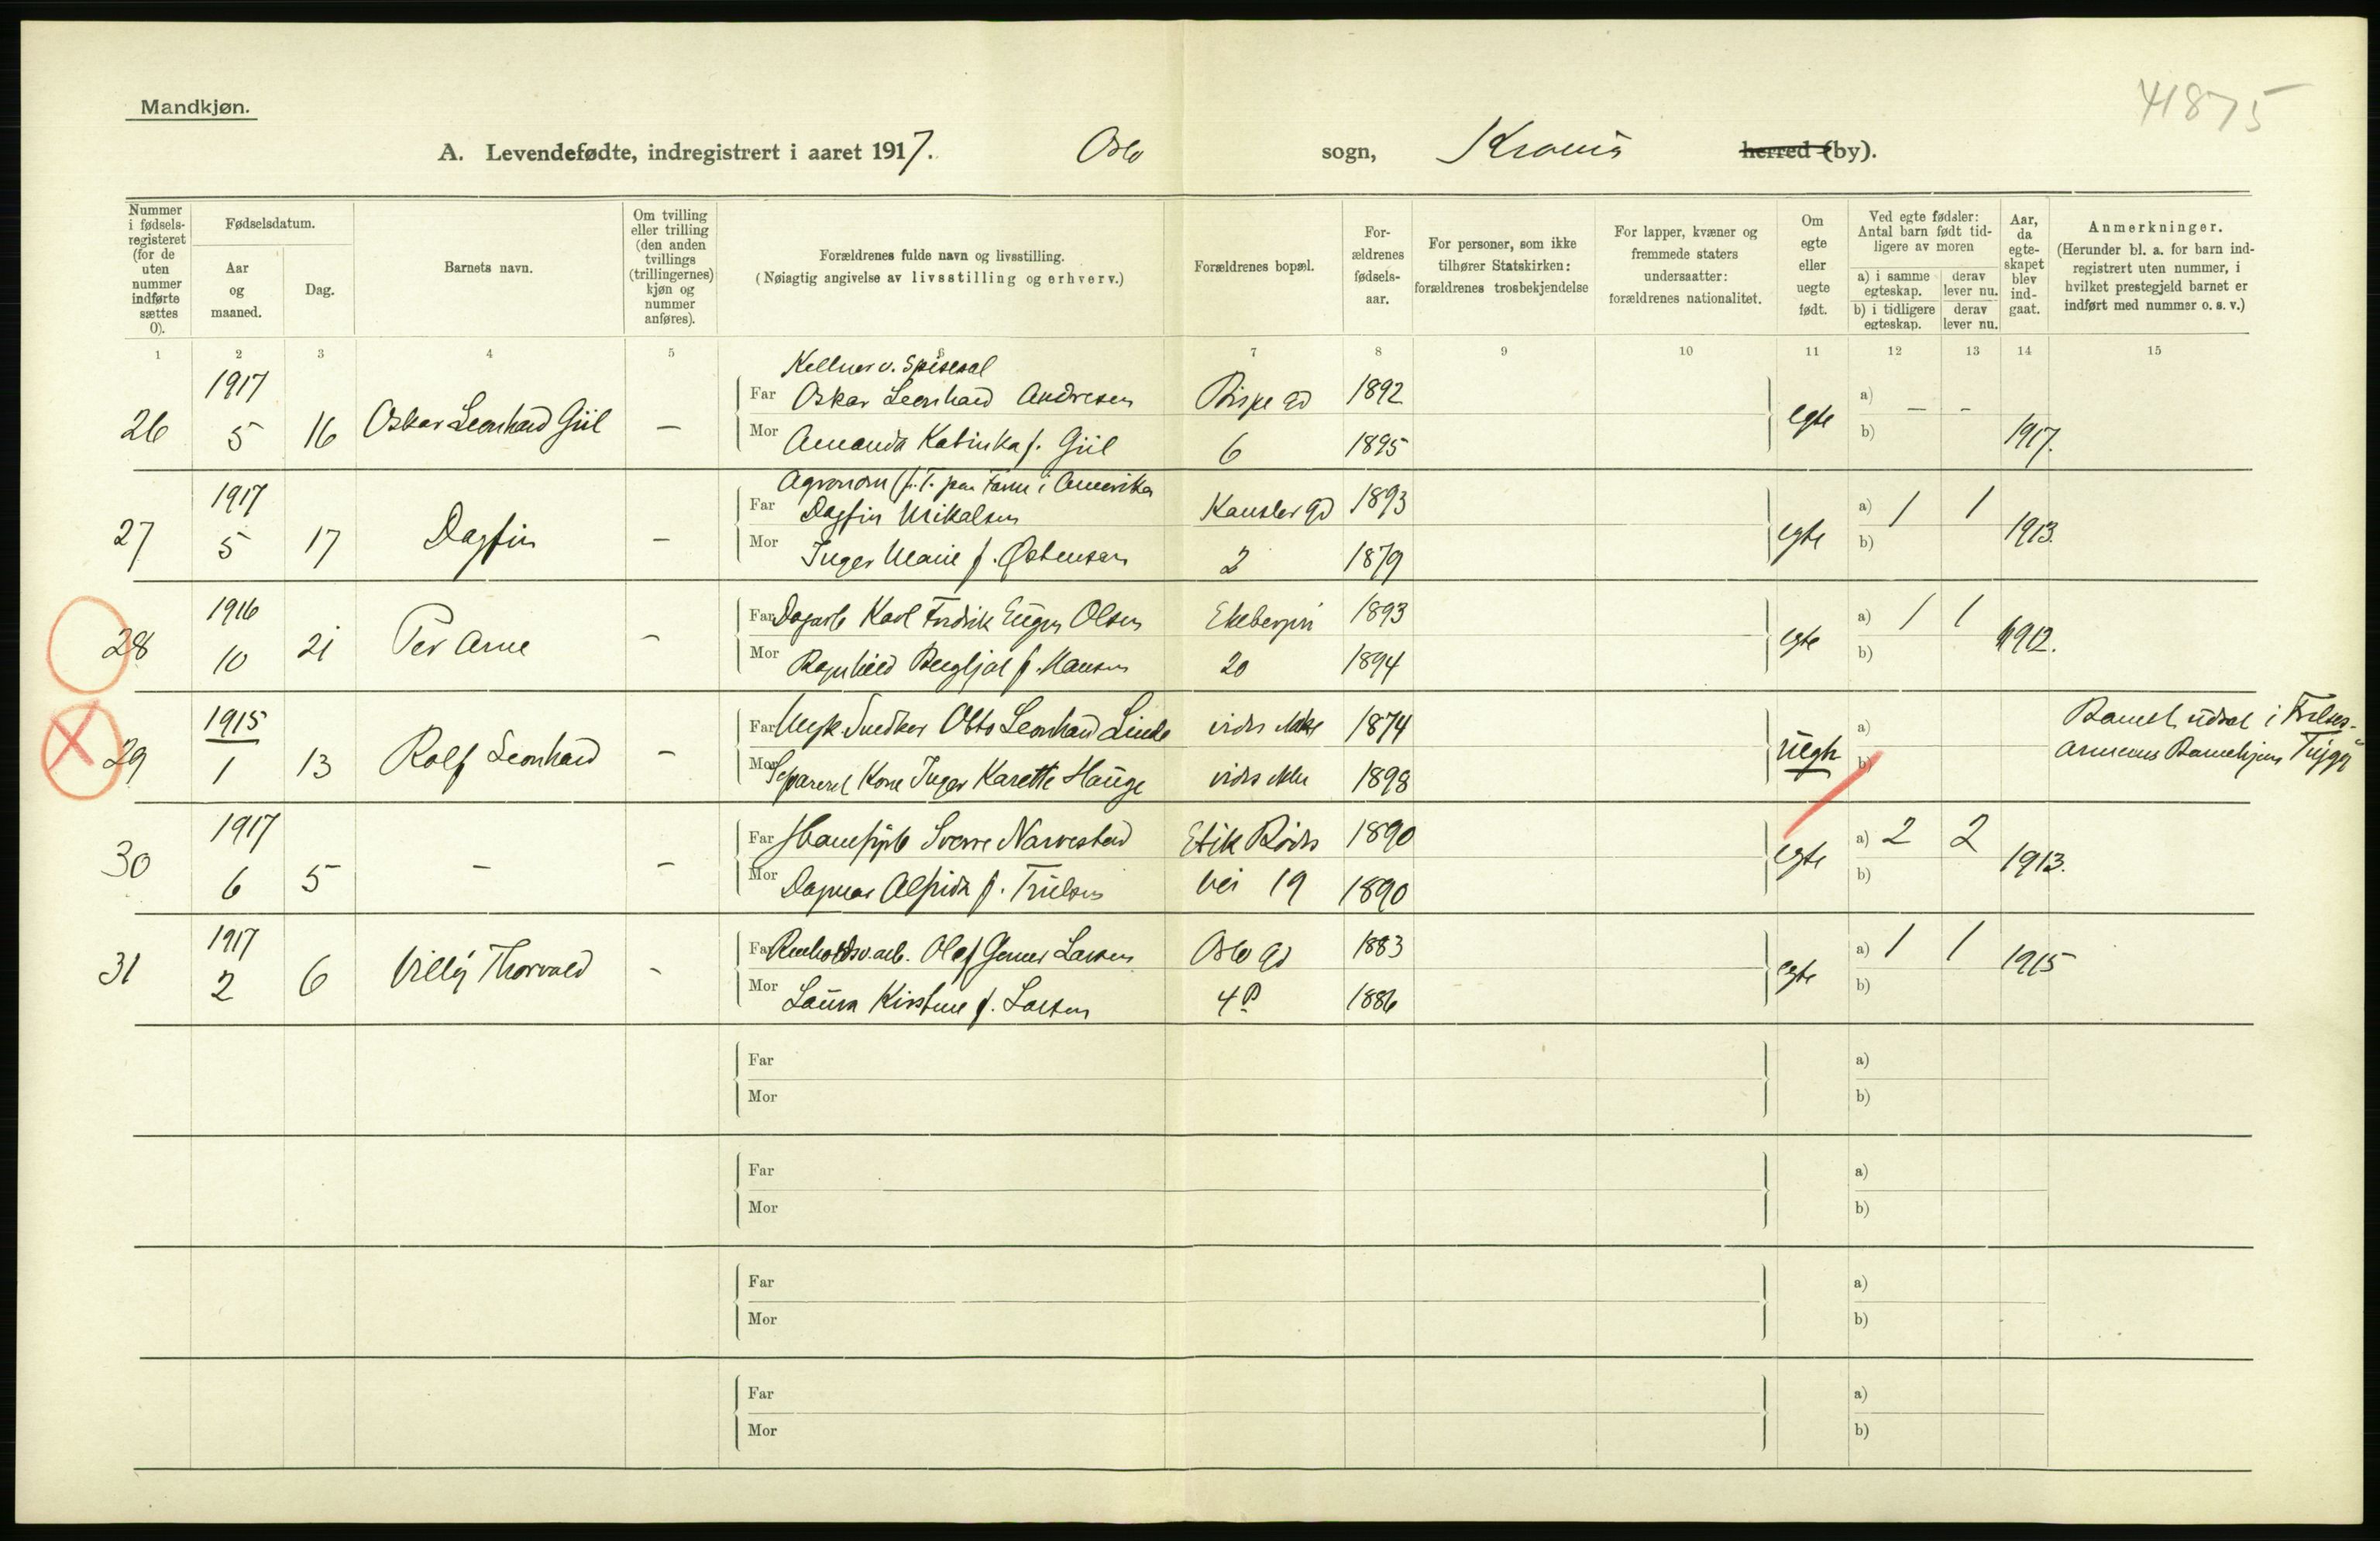 41875
Mandkjøn.
A. Levendefødte, indregistrert i aaret 1917. Oslo sogn, Krania herred (by).
Nummer i fødsels-registeret (for de uten nummer indførte sættes 0).
Fødselsdatum.
Aar og maaned.
Dag.
Barnets navn.
Om tvilling eller trilling (den anden tvillings (trillingernes) kjøn og nummer anføres).
Forældrenes fulde navn og livsstilling.
(Nøiagtig angivelse av livsstilling og erhverv.)
Forældrenes bopæl.
For-ældrenes fødsels-aar.
For personer, som ikke tilhører Statskirken: forældrenes trosbekjendelse
For lapper, kvæner og fremmede staters undersaatter: forældrenes nationalitet.
Om egte eller uegte født.
Ved egte fødsler: Antal barn født tid-ligere av moren
a) i samme egteskap. derav lever nu.
b) i tidligere egteskap. derav lever nu.
Aar, da egte-skapet blev ind-gaat.
Anmerkninger.
(Herunder bl. a. for barn ind-registrert uten nummer, i hvilket prestegjeld barnet er indført med nummer o. s. v.)
1 2 3 4 5 6 7 8 9 10 11 12 13 14 15
Kellner v. Spisesal
26 1917 5 16 Oskar Leonhard Giil — Far Oskar Leonhard Andresen Bispe gd 1892 egte a) — -
Mor Amanda Katinka f. Giil 6 1895 b) 1917.
Agronom (f. T. paa Farm i Amerika
27 1917 5 17 Dagfin — Far Dagfin Mikalsen Kansler gd 1893 egte a) 1 1 1913.
Mor Inger Marie f. Østensen 2 1879 b)
28 1916 10 21 Per Arne — Far Dagarb Karl Fredrik Eugen Olsen Ekebergvn 1893 egte a) 1 1 1912.
Mor Ragnhild Bergljot f. Hansen 20 1894 b)
29 1915 1 13 Rolf Leonhard — Far Snedker Otto Leonhard Linde vides ikke 1874 uegte a) Barnet udsat i Frelses-
Mor Separeret Kone Inger Karette Hauge vides ikke 1898 b) armeens Barnehjem Tryggv"
30 1917 6 5 — — Far Sverre Narvestad Etik Rødes 1890 egte a) 2 2 1913.
Mor Dagmar Alfrida f. Trulsen vei 19 1890 b)
31 1917 2 6 Villÿ Thorvald - Far Renholdsv. arb. Olaf Gerner Larsen Oslo gd 1883 egte a) 1 1 1915
Mor Laura Kirstine f. Larsen 4B 1886 b)
Far a)
Mor b)
Far a)
Mor b)
Far a)
Mor b)
Far a)
Mor b)